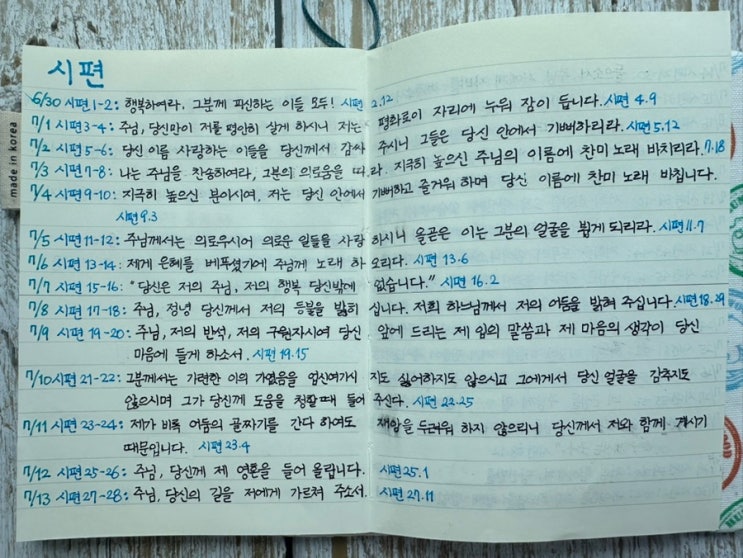 시편
6/30 시편 1-2: 행복하여라, 그분께 피신하는 이들 모두! 시편 2.12
7/1 시편 3-4: 주님, 당신만이 저를 평안히 살게 하시니 저는 평화로이 자리에 누워 잠이 듭니다. 시편 4.9
7/2 시편 5-6: 당신 이름 사랑하는 이들을 당신께서 감싸 주시니 그들은 당신 안에서 기뻐하리라. 시편 5.12
7/3 시편 7-8: 나는 주님을 찬송하여라, 그분의 의로움을 따라. 지극히 높으신 주님의 이름에 찬미 노래 바치리라. 7.18
7/4 시편 9-10: 지극히 높으신 분이시여, 저는 당신 안에서 기뻐하고 즐거워 하며 당신 이름에 찬미 노래 바칩니다.
시편 9.3
7/5 시편 11-12: 주님께서는 의로우시어 의로운 일들을 사랑하시니 올곧은 이는 그분의 얼굴을 뵙게 되리라. 시편 11.7
7/6 시편 13-14: 제게 은혜를 베푸셨기에 주님께 노래 하오리다. 시편 13.6
7/7 시편 15-16: "당신은 저의 주님, 저의 행복 당신밖에 없습니다." 시편 16.2
7/8 시편 17-18: 주님, 정녕 당신께서 저의 등불을 밝히십니다. 저희 하느님께서 저의 어둠을 밝혀 주십니다. 시편 18.29
7/9 시편 19-20: 주님, 저의 반석, 저의 구원자시여 당신 앞에 드리는 제 입의 말씀과 제 마음의 생각이 당신
마음에 들게 하소서. 시편 19.15
7/10 시편 21-22: 그분께서는 가련한 이의 가엾음을 업신여기시지도 싫어하지도 않으시고 그에게서 당신 얼굴을 감추지도
않으시며 그가 당신께 도움을 청할 때 들어 주신다. 시편 22.25
7/11 시편 23-24: 제가 비록 어둠의 골짜기를 간다 하여도 재앙을 두려워 하지 않으리니 당신께서 저와 함께 계시기
때문입니다. 시편 23.4
7/12 시편 25-26: 주님, 당신께 제 영혼을 들어 올립니다. 시편 25.1
7/13 시편 27-28: 주님, 당신의 길을 저에게 가르쳐 주소서. 시편 27.11
made in korea